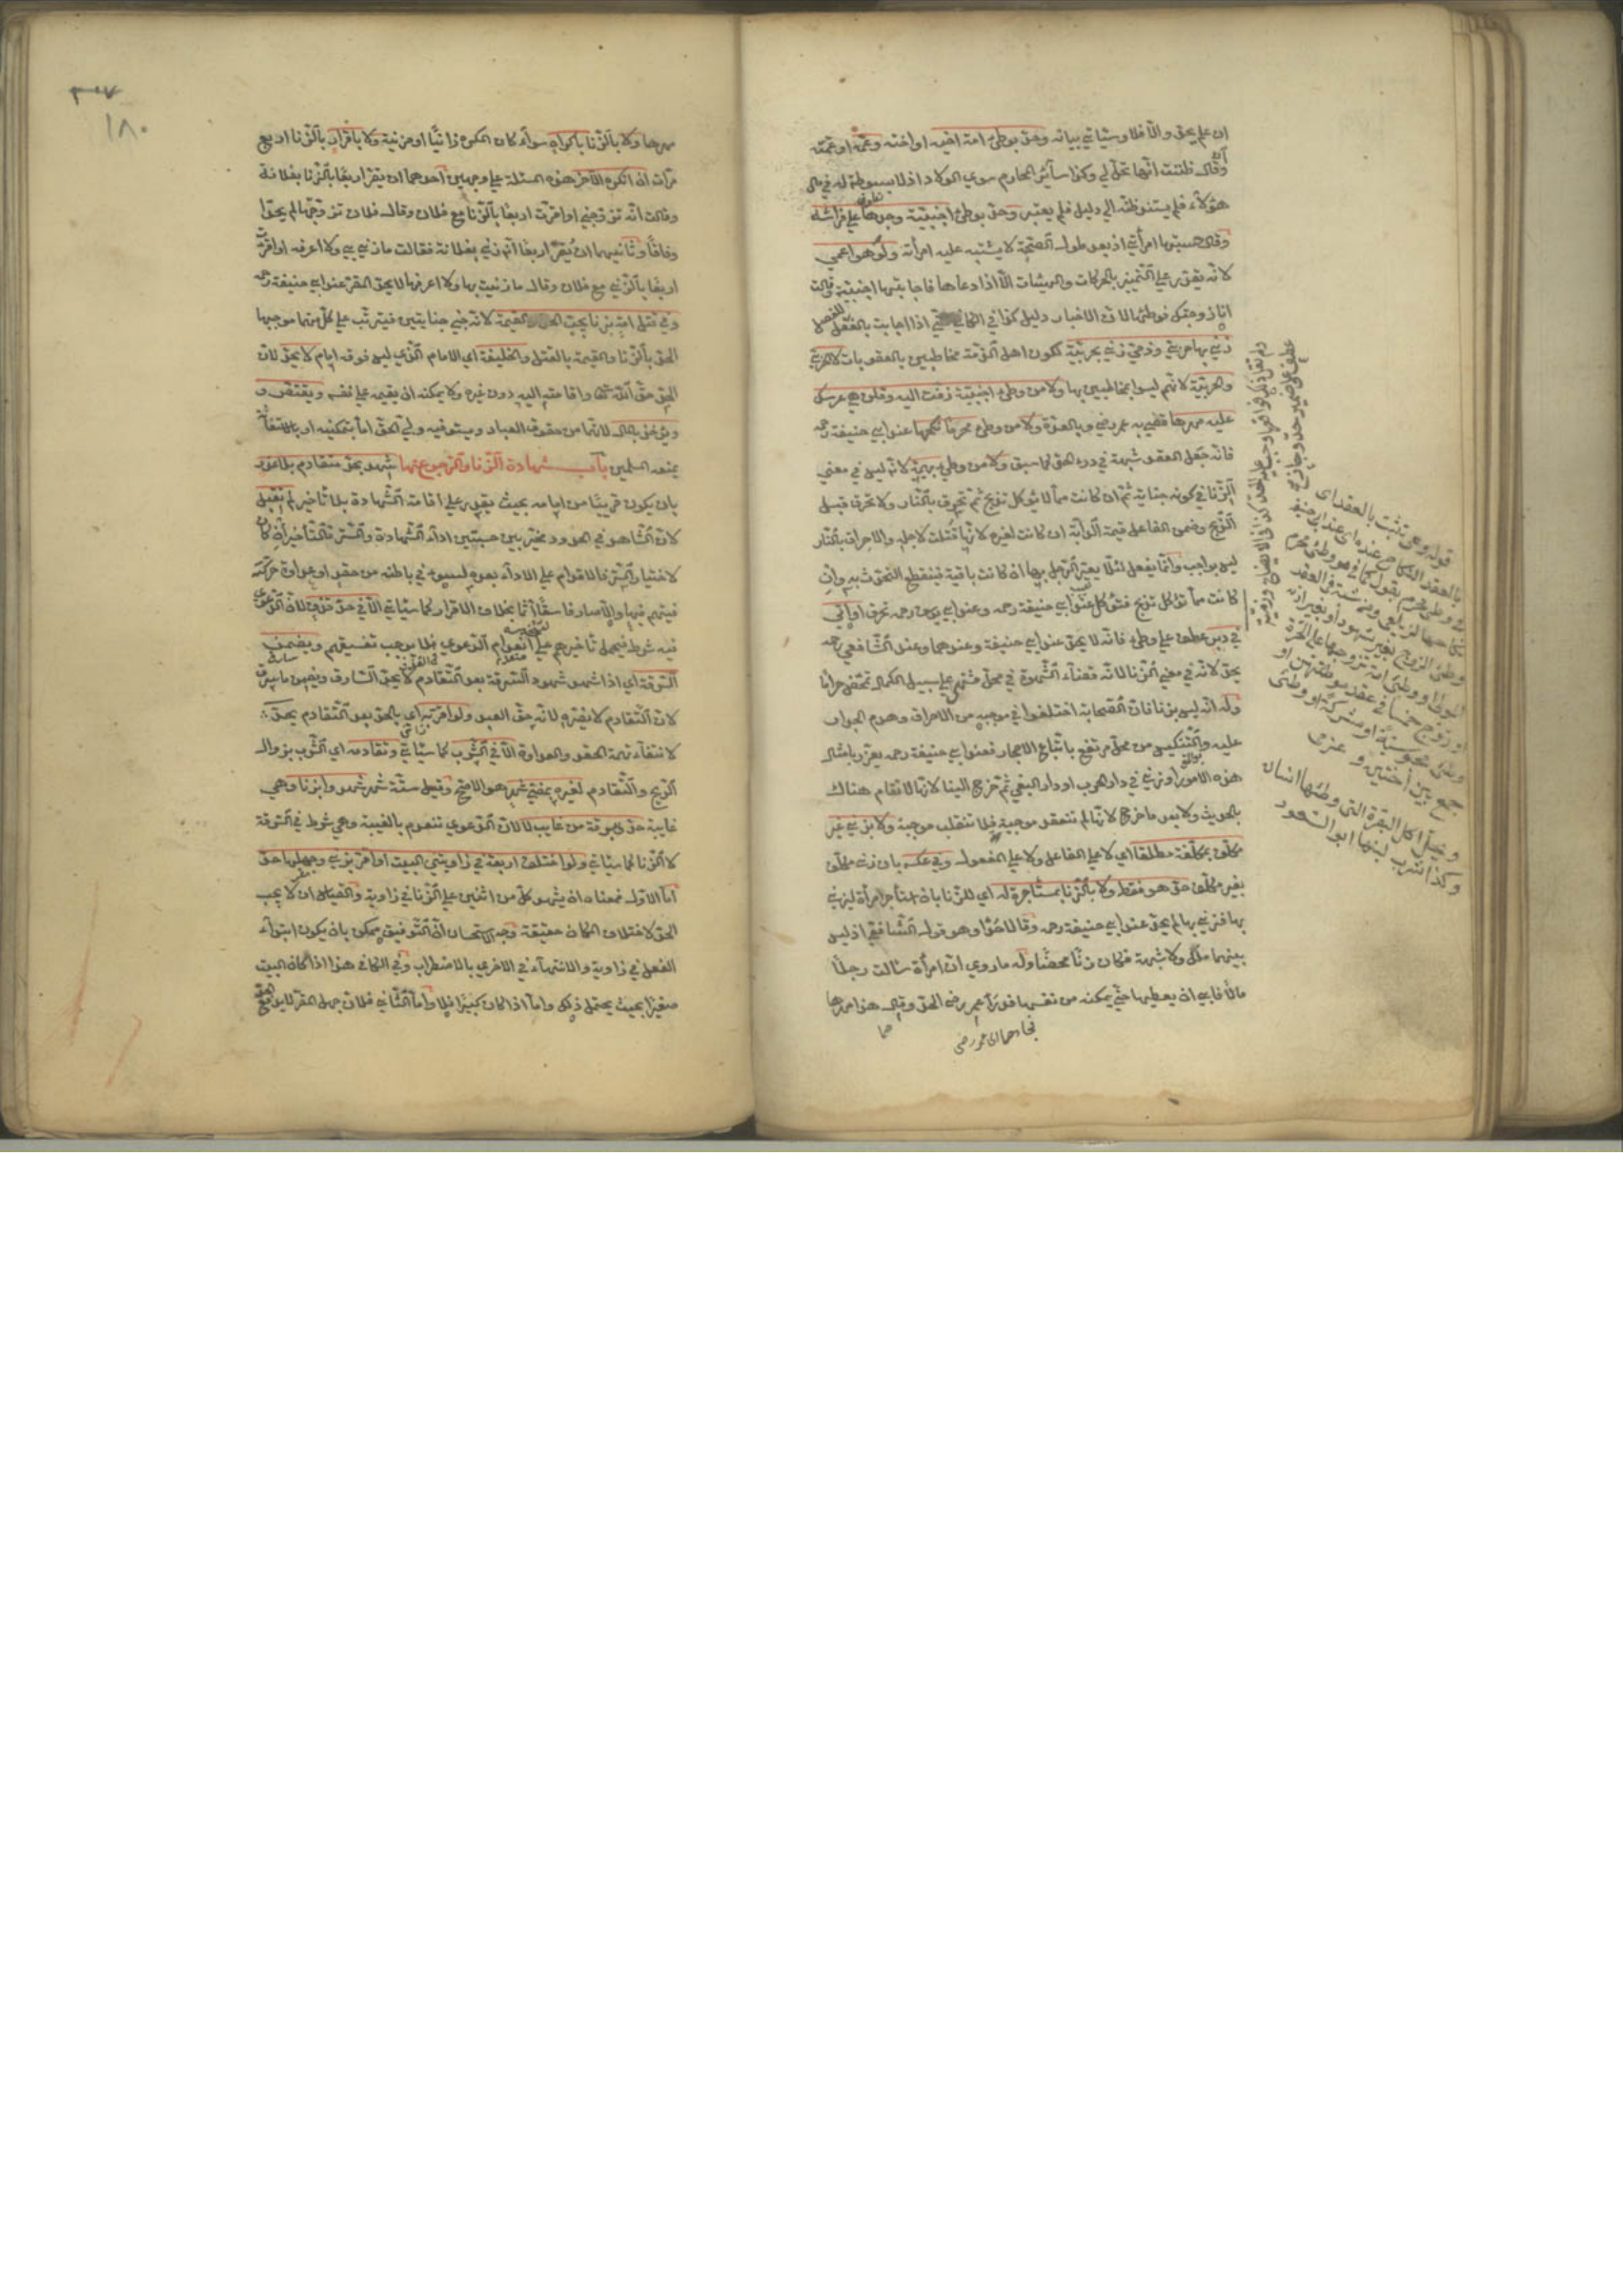 ان علم يحد والا فلا وسيأتي بيانه وحد بوطئ امة اخيه او اخته وعمه او عمته
وقال ظننت انها تحل لي وكذا سائر المحارم سوى الولاد اذ لا بسوطة له في مال
هؤلاء فلم يستند ظنه الي دليل فلم يعتبر وحد بوطئ اجنبية وجدها علي فراشه
وقال حسبتها امرأتي اذ بعد طول الصحبة لا يشتبه عليه امرأته ولو هو اعمي
لانه يقدر علي التمييز بالحركات والهيئات الا اذا دعاها فاجابتها اجنبية قالت
انا زوجتك فوطئها لان الاخبار دليل كذا في الكافي حتي اذا اجابت بالفعل لا
زني بها حربي وذمي زني بحربية لكون اهل الذمة مخاطبين بالعقوبات لا الحربي
والحربية لانهم ليسوا بمخاطبين بها ولا من وطئ اجنبية زفت اليه وقلن هي عرسك
عليه مهرها قضي به عمر رضي وبالعدة ولا من وطئ محرما نكحها عند ابي حنيفة رحمه
فانه جعل العقد شبهة في درء الحد لما سبق ولا من وطئ بهيمة لانه ليس في معني
الزنا في كونه جناية ثم ان كانت مما لا يؤكل تذبح ثم تحرق بالنار ولا تحرق قبل
الذبح وضمن الفاعل قيمة الدابة ان كانت لغيره لانها قتلت لاجله والاحراق بالنار
ليس بواجب وانما يفعل لئلا يعير الرجل بها ان كانت باقية فينقطع التحدث به وان
كانت مما تؤكل تذبح فتؤكل عند ابي حنيفة رحمه وعند ابي يوسف رحمه تحرق او اتي
في دبر عطف علي وطئ فانه لا يحد عند ابي حنيفة وعندهما وعند الشافعي رحمه
يحد لانه في معني الزنا لانه قضاء الشهوة في محل مشتهي علي سبيل الكمال تمحض حراما
وله انه ليس بزنا فان الصحابة اختلفوا في موجبه من الاحراق وهدم الجدار
عليه والتنكيس من محل مرتفع باتباع الاحجار فعند ابي حنيفة رحمه يعزر بامثال
هذه الامور او زني في دار الحرب او دار البغي ثم خرج الينا لانها لا تقام هناك
بالحديث ولا بعد ما خرج لانها لم تنعقد موجبة فلا تنقلب موجبة ولا بزني غير
مكلف بمكلفة مطلقا اي لا علي الفاعل ولا علي المفعول وفي عكسه بان زني مكلف
بغير مكلفة حد هو فقط ولا بالزنا بمستأجرة له اي للزنا بان استأجر امرأة ليزني
بها فزني بها لم يحد عند ابي حنيفة رحمه وقالا حدا وهو قول الشافعي اذ ليس
بينهما ملك ولا شبهة فكان زنا محضا وله ما روي ان امرأة سالت رجلا
مالا فابي ان يعطيها حتي يمكنه من نفسها فدرأ عمر رضي الحد وقال هذا مهرها
قوله وعن تثبت بالعقد اي
بالعقد النكاح عنده اي عند ابي حنيفة
وطئ الزوج بغير شهود او بغير اذن
او تزوج خمسا في عقد فوطئهن او
وطئ مجوسية او مشركة او وطئ
جمع بين أختين و عزمى
و خيل اكل البقرة التي وطئها انسان
و كذا شرب لبنها ابو السعود
٣٠٧
١٨٠
مهرها ولا بالزنا باكراه سواء كان المكره زانيا او مزنية ولا باقرار بالزنا اربع
مرات ان انكره الآخر هذه المسئلة علي وجهين احدهما ان يقر اربعا بالزنا بفلانة
وقالت انه تزوجني او اقرت اربعا بالزنا مع فلان وقال فلان تزوجتها لم يحدا
وفاقا وثانيهما ان يقر اربعا انه زني بفلانة فقالت ما زني بي ولا اعرفه او اقرت
اربعا بالزني مع فلان وقال ما زنيت بها ولا اعرفها لا يحد المقر عند ابي حنيفة رحمه
وفي قتل امة بزنا يجب الحد والقيمة لانه جني جنايتين فيترتب علي كل منهما موجبها
الحد بالزنا والقيمة بالقتل والخليفة اي الامام الذي ليس فوقه امام لا يحد لان
الحد حق الله تعالى واقامته اليه دون غيره ولا يمكنه ان يقيمه علي نفسه ويقتص و
ويؤخذ بالمال لانهما من حقوق العباد ويستوفيه ولي الحق اما بتمكينه او بالاستعانة
بمنعة المسلمين باب شهادة الزنا والرجوع عنها شهد بحد متقادم بلا عذر
بان يكون قريبا من امامه بحيث يقدر علي اقامة الشهادة بلا تاخير لم تقبل
لان الشاهد في الحدود مخير بين حسبتين اداء الشهادة والستر فالتأخير ان كان
لاختيار الستر فالاقدام علي الاداء بعده لسوء في باطنه من حقد او عداوة حركته
فيتهم فيها والا صار فاسقا آثما بخلاف الاقرار كما سيأتي الا في حد قذف لان الدعوي
فيه شرط فيحمل تأخيرهم علي انعدام الدعوي فلا يوجب تفسيقهم ويضمن
السرقة اي اذا شهد شهود السرقة بعد التقادم لا يحد السارق ويضمن ما سرق
لان التقادم لا يضره لانه حق العبد ولو اقر به اي بالحد بعد التقادم يحد
لانتفاء تهمة الحقد والعداوة الا في الشرب كما سيأتي وتقادمه اي الشرب بزوال
الريح والتقادم لغيره بمضي شهر هو الاصح وقيل ستة شهر شهدوا بزنا وهي
غايبة حد وبسرقة من غايب لا لان الدعوي تنعدم بالغيبة وهي شرط في السرقة
لا الزنا كما سيأتي ولو اختلف اربعة في زاويتي البيت او اقر بزني وجهلها حد
اما الاول فمعناه ان يشهد كل من اثنين علي الزنا في زاوية والقياس ان لا يجب
الحد لاختلاف المكان حقيقة وجه الاستحسان ان التوفيق ممكن بان يكون ابتداء
الفعل في زاوية والانتهاء في الاخري بالاضطراب وفي الكافي هذا اذا كان البيت
صغيرا بحيث يحتمل ذلك واما اذا كان كبيرا فلا واما الثاني فلان جهل المقر لا يدفع